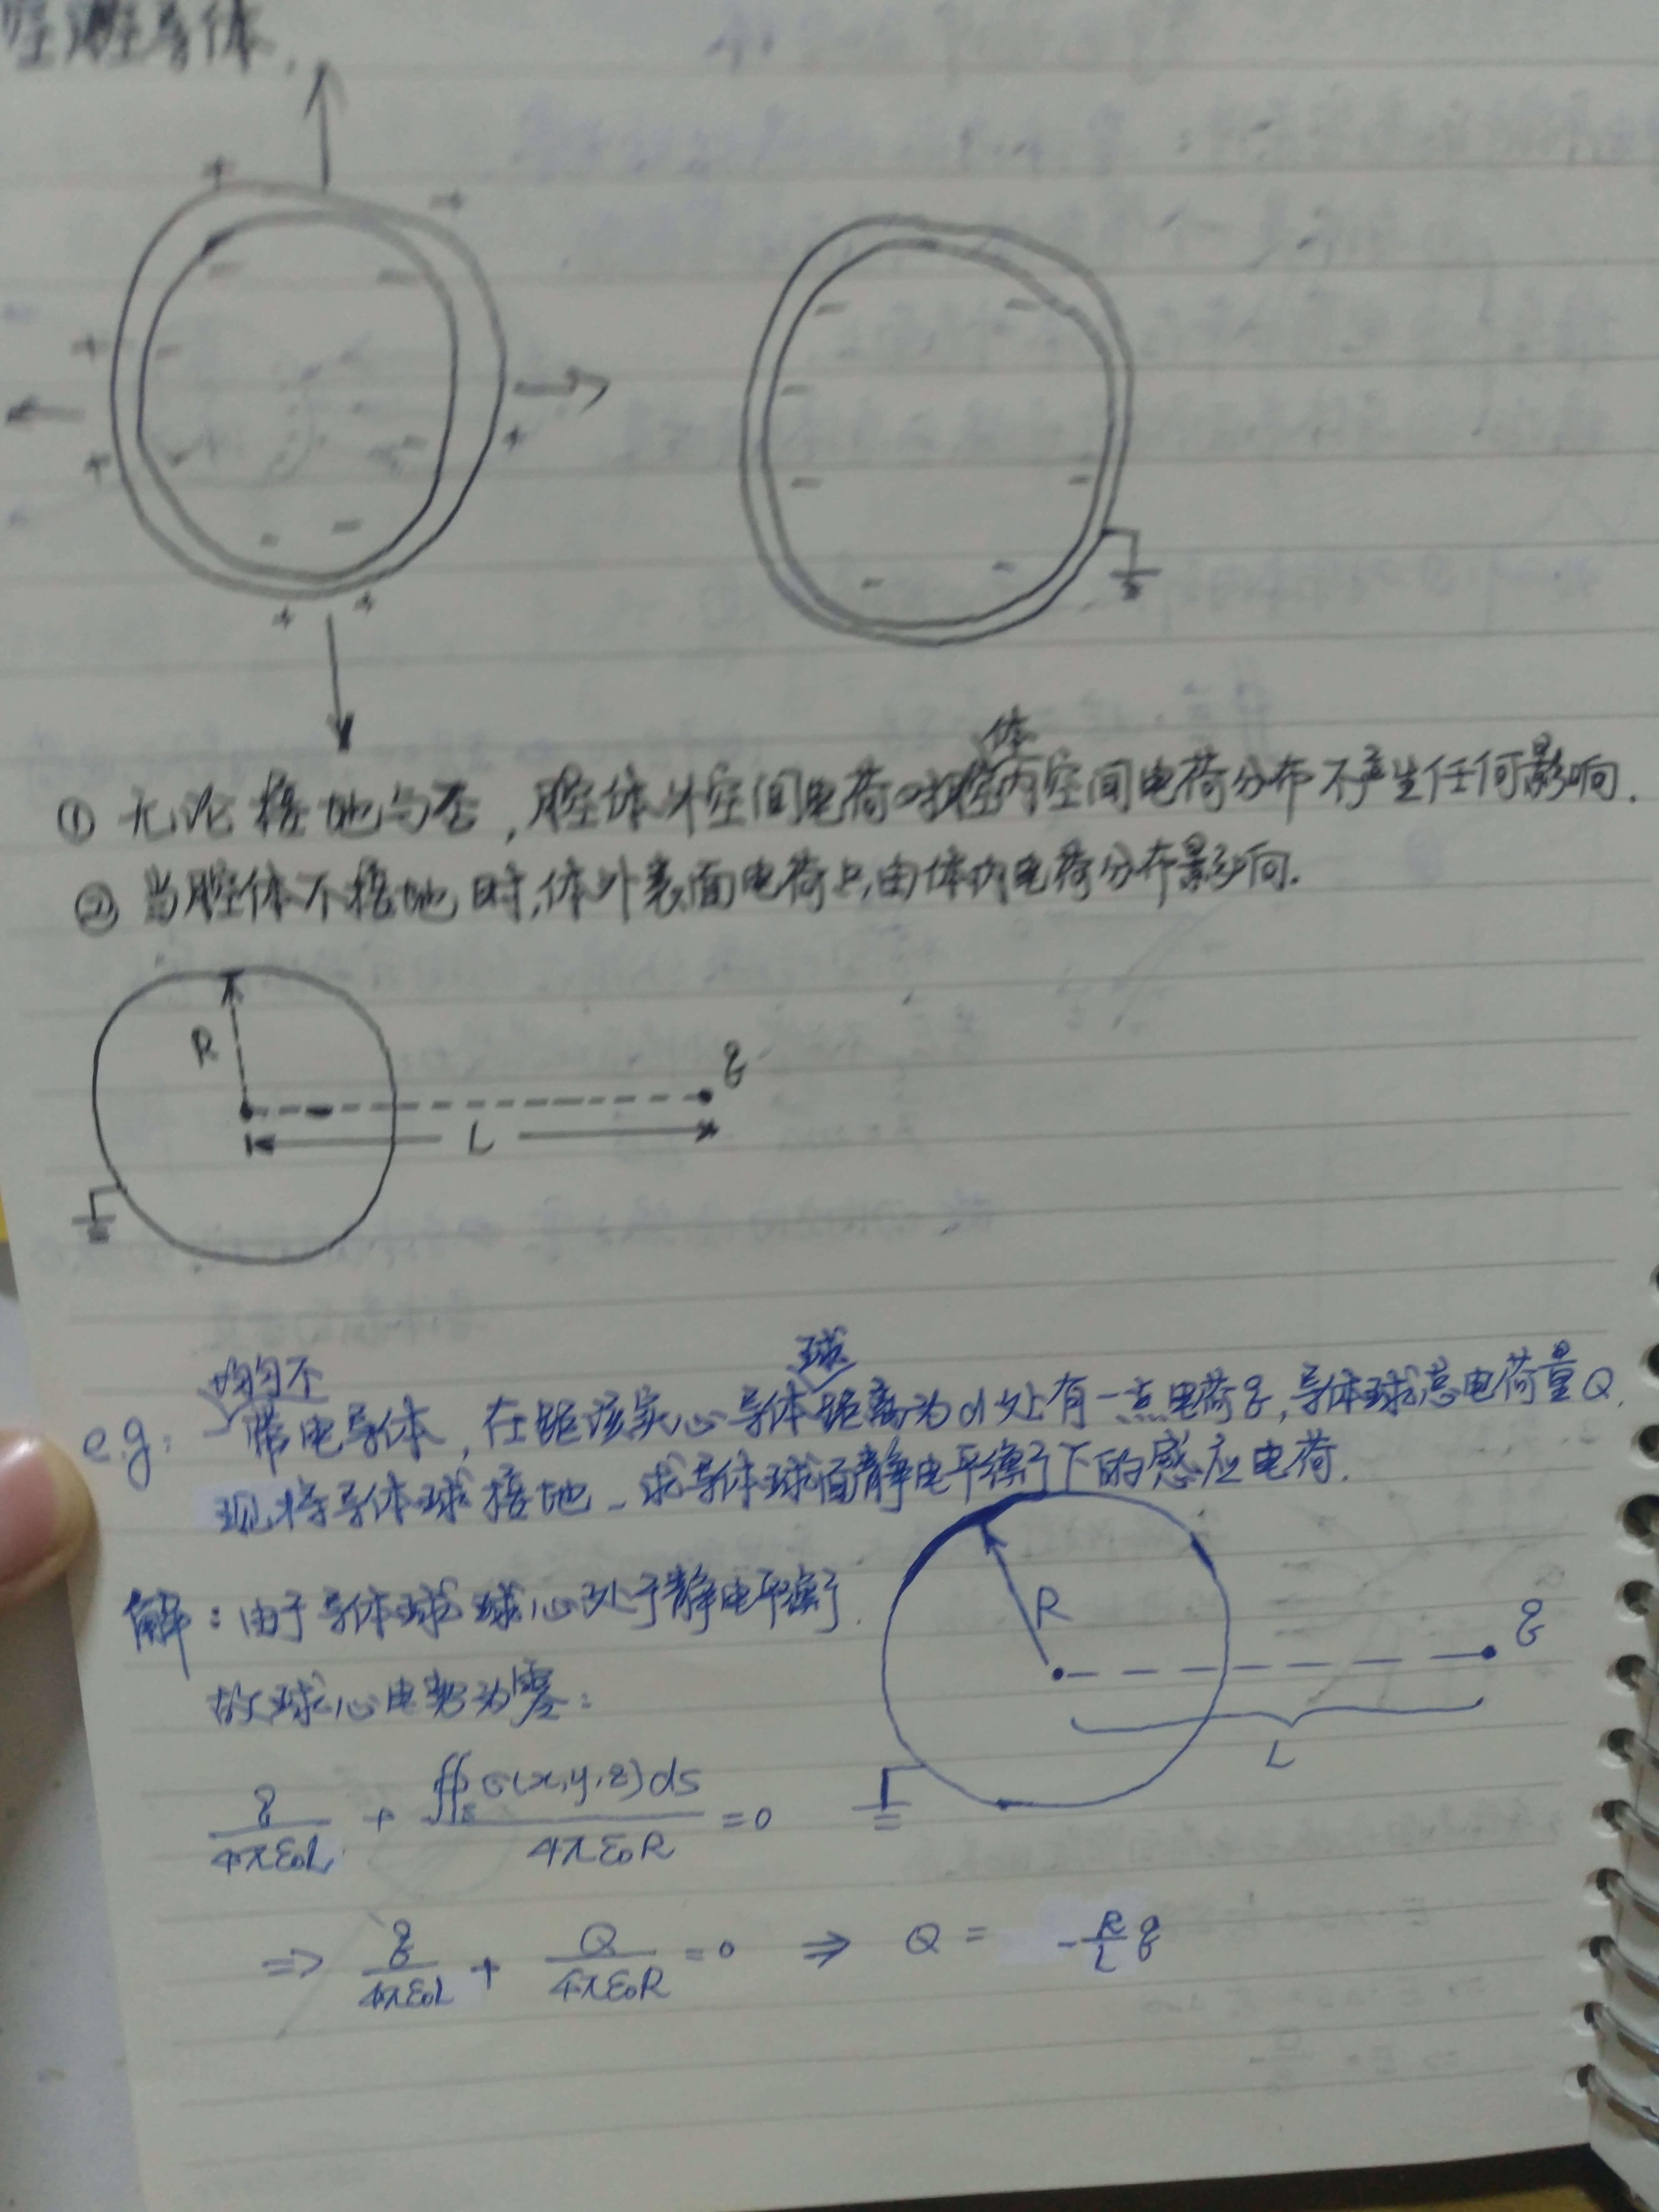 空腔导体.
+ +
- -
+ -
+ - +
- -
+ +
- -
-
- -
- -
体
① 无论接地与否,腔体外空间电荷对腔内空间电荷分布不产生任何影响.
② 当腔体不接地时,体外表面电荷只由体内电荷分布影响.
R
q
L
均匀不 球
e.g: 带电导体,在距该实心导体距离为d处有一点电荷q,导体球总电荷量Q.
现将导体球接地,求导体球面静电平衡下的感应电荷.
解:由于导体球球心处于静电平衡.
R
q
故球心电势为零:
L
q/4πε₀L + ∯ₛσ(x,y,z)ds/4πε₀R = 0
⇒ q/4πε₀L + Q/4πε₀R = 0 ⇒ Q = -R/L q